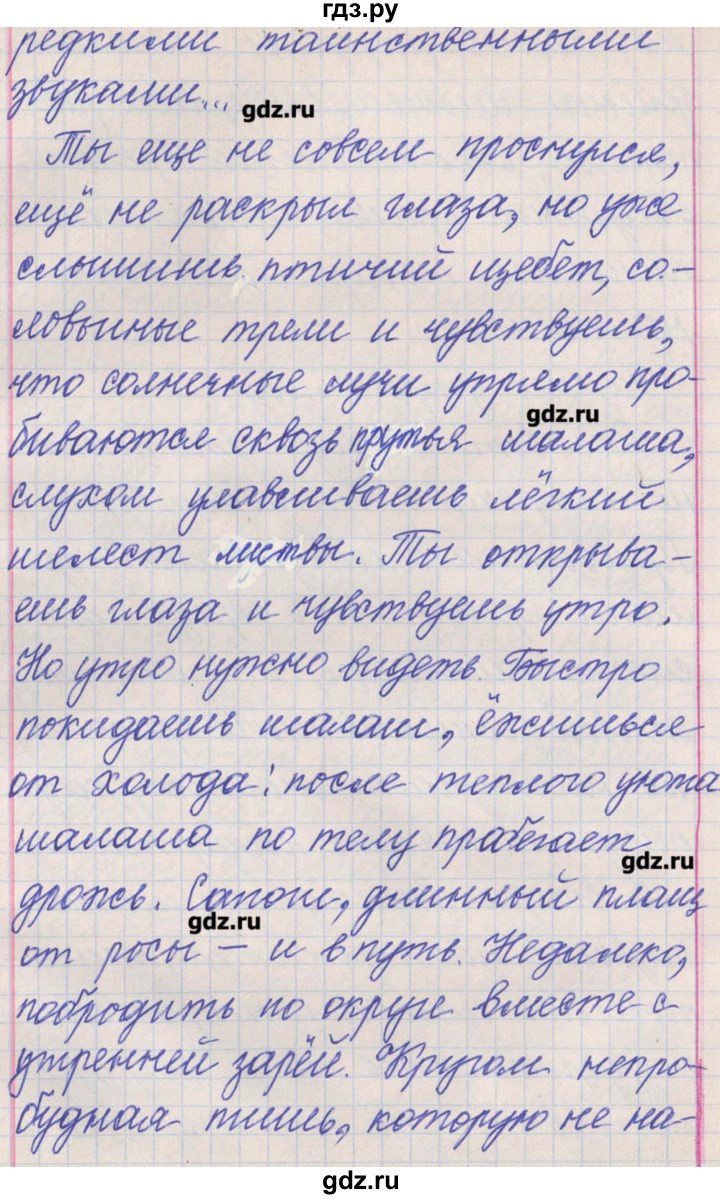 гдз.ру
редкими таинственными
звуками...
gdz.ru
Ты еще не совсем проснулся,
ещё не раскрыл глаза, но уже
слышишь птичий щебет, со-
ловьиные трели и чувствуешь,
что солнечные лучи упрямо про-
gdz.ru
биваются сквозь прутья шалаша,
слухом улавливаешь лёгкий
шелест листвы. Ты открыва-
ешь глаза и чувствуешь утро.
Но утро нужно видеть. Быстро
покидаешь шалаш, ёжишься
от холода: после теплого уюта
шалаша по телу пробегает
gdz.ru
дрожь. Сапоги, длинный плащ
gdz.ru
от росы – и в путь. Недалеко,
побродить по округе вместе с
утренней зарёй. Кругом непро-
будная тишь, которую не на-
gdz.ru